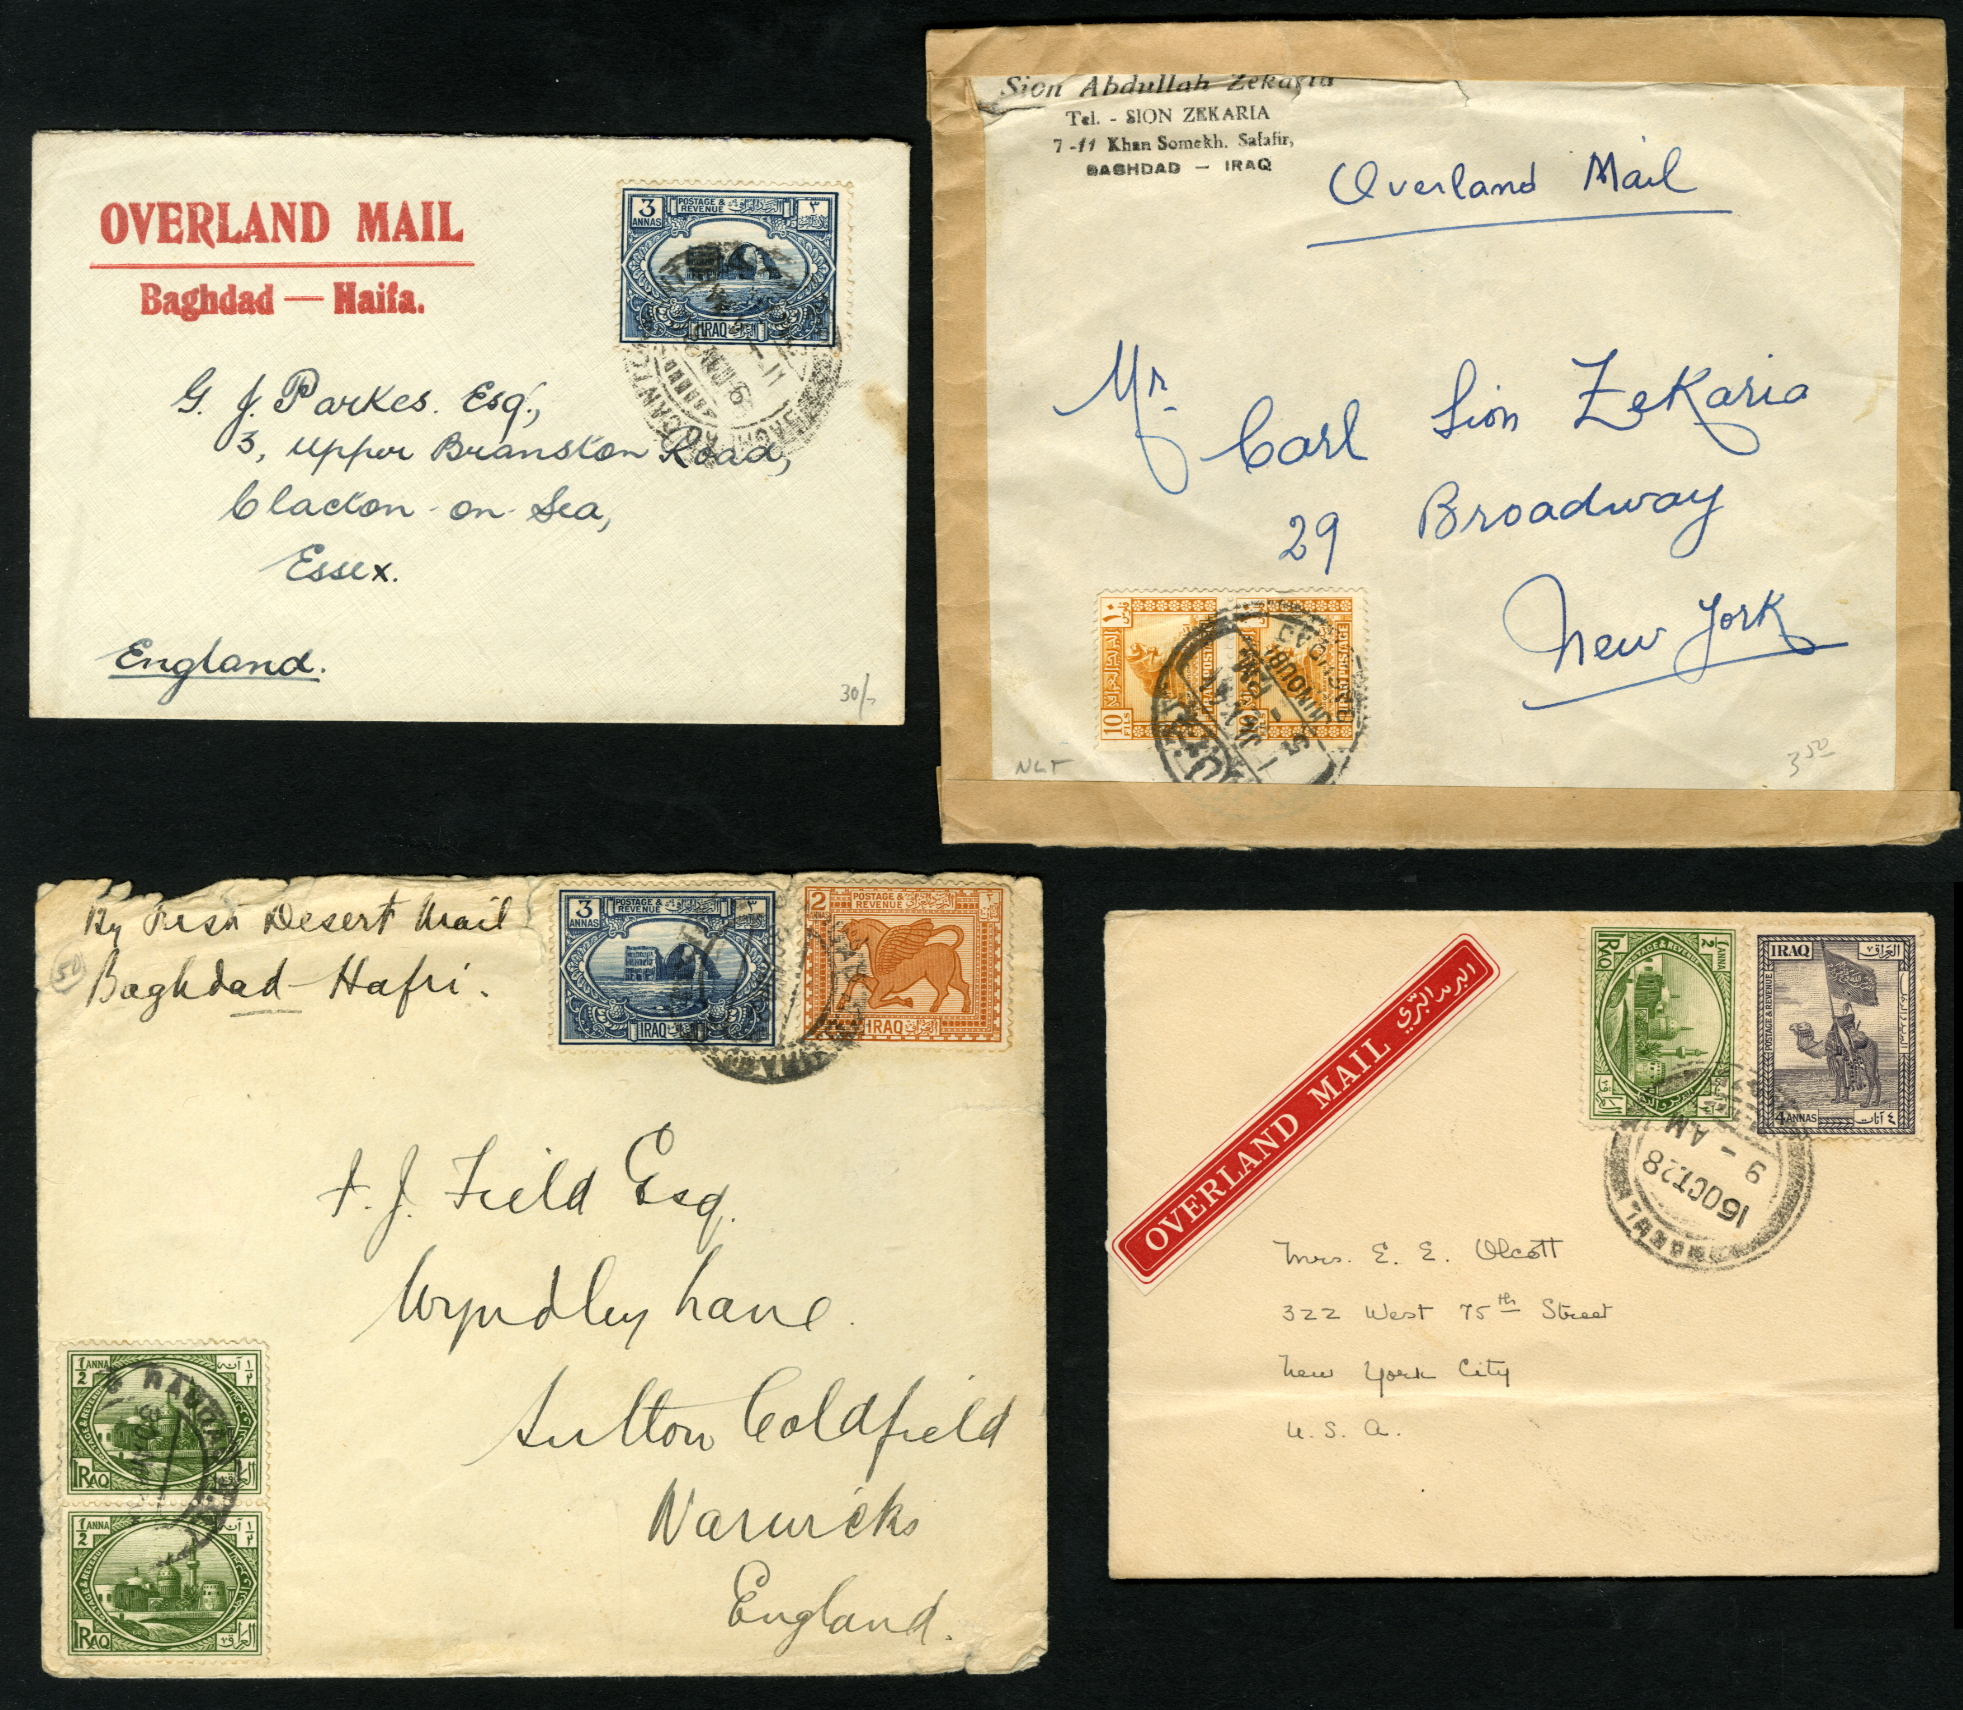 OVERLAND MAIL
Baghdad — Haifa.
3
ANNAS
POSTAGE &
REVENUE
٣
IRAQ
G. J. Parkes. Esq.,
3, Upper Branston Road,
Clacton-on-Sea,
Essex.
England.
30/-
Sion Abdullah Zekaria
Tel. - SION ZEKARIA
7-11 Khan Somekh, Safafir,
BAGHDAD — IRAQ
Overland Mail
Mr. Carl Sion Zekaria
29 Broadway
New York
10
FILS
IRAQ POSTAGE
NLT
3 50
By Desert Mail
Baghdad - Hafri.
50
3
ANNAS
POSTAGE &
REVENUE
٣
IRAQ
2
ANNAS
POSTAGE &
REVENUE
IRAQ
F. J. Field Esq.
Wyndley Lane.
Sutton Coldfield
Warwicks
England.
1/2 ANNA
POSTAGE & REVENUE
IRAQ
العراق
1/2 ANNA
POSTAGE & REVENUE
IRAQ
العراق
OVERLAND MAIL البريد البرّي
1/2 ANNA
POSTAGE & REVENUE
IRAQ
IRAQ العراق
POSTAGE & REVENUE
4 ANNAS ٤ آنات
9 - AM
16 OCT. 28
Mrs. E. E. Olcott
322 West 75th Street
New York City
U. S. A.